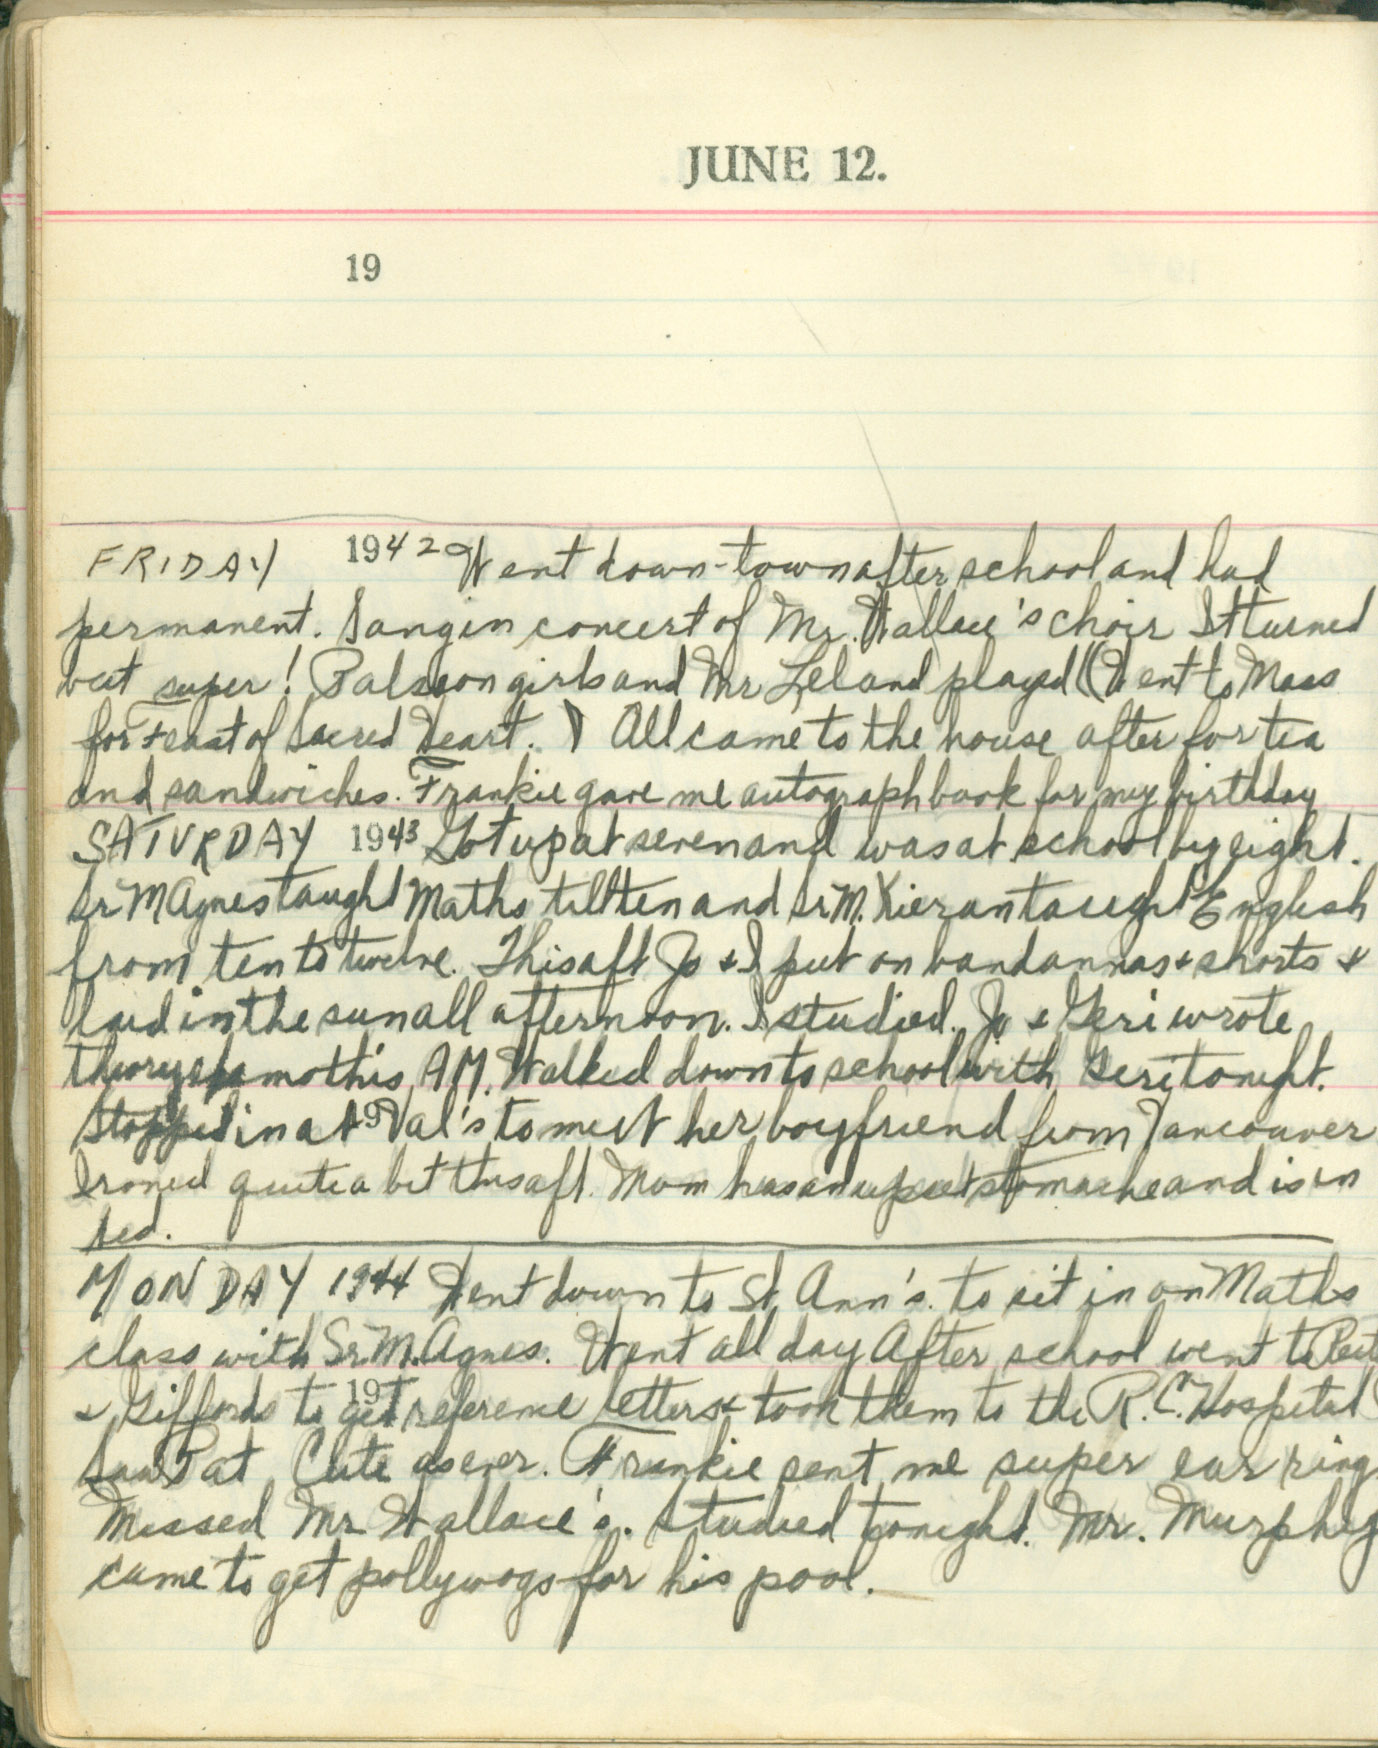 JUNE 12.
19
FRIDAY 1942 Went down-town after school and had
permanent. Sang in concert of Mr. Wallace's choir It turned
out super! girls and Mr Leland played (Went to Mass
for Feast of Sacred Heart.) All came to the house after for tea
and sandwiches. Frankie gave me autograph book for my birthday
SATURDAY 1943 Got up at seven and was at school by eight.
Sr M Agnes taught Maths till ten and Sr M. Kieran taught English
from ten to twelve. This aft Jo & I put on bandannas & shorts &
laid in the sun all afternoon. I studied. Jo & Geri wrote
theory exam this A.M. Walked down to school with Geri tonight.
Stopped in at 19 Val's to meet her boyfriend from Vancouver
Ironed quite a bit this aft. Mom has an upset stomache and is in
bed.
MONDAY 1944 Went down to St Ann's to sit in on Maths
class with Sr. M. Agnes. Went all day After school went to
& Giffords to get 19 reference letters & took them to the R.C. Hospital
Saw Pat Cute as ever. Frankie sent me super ear ring
Missed Mr Wallace's. Studied tonight. Mr. Murphy
came to get pollywogs for his pool.